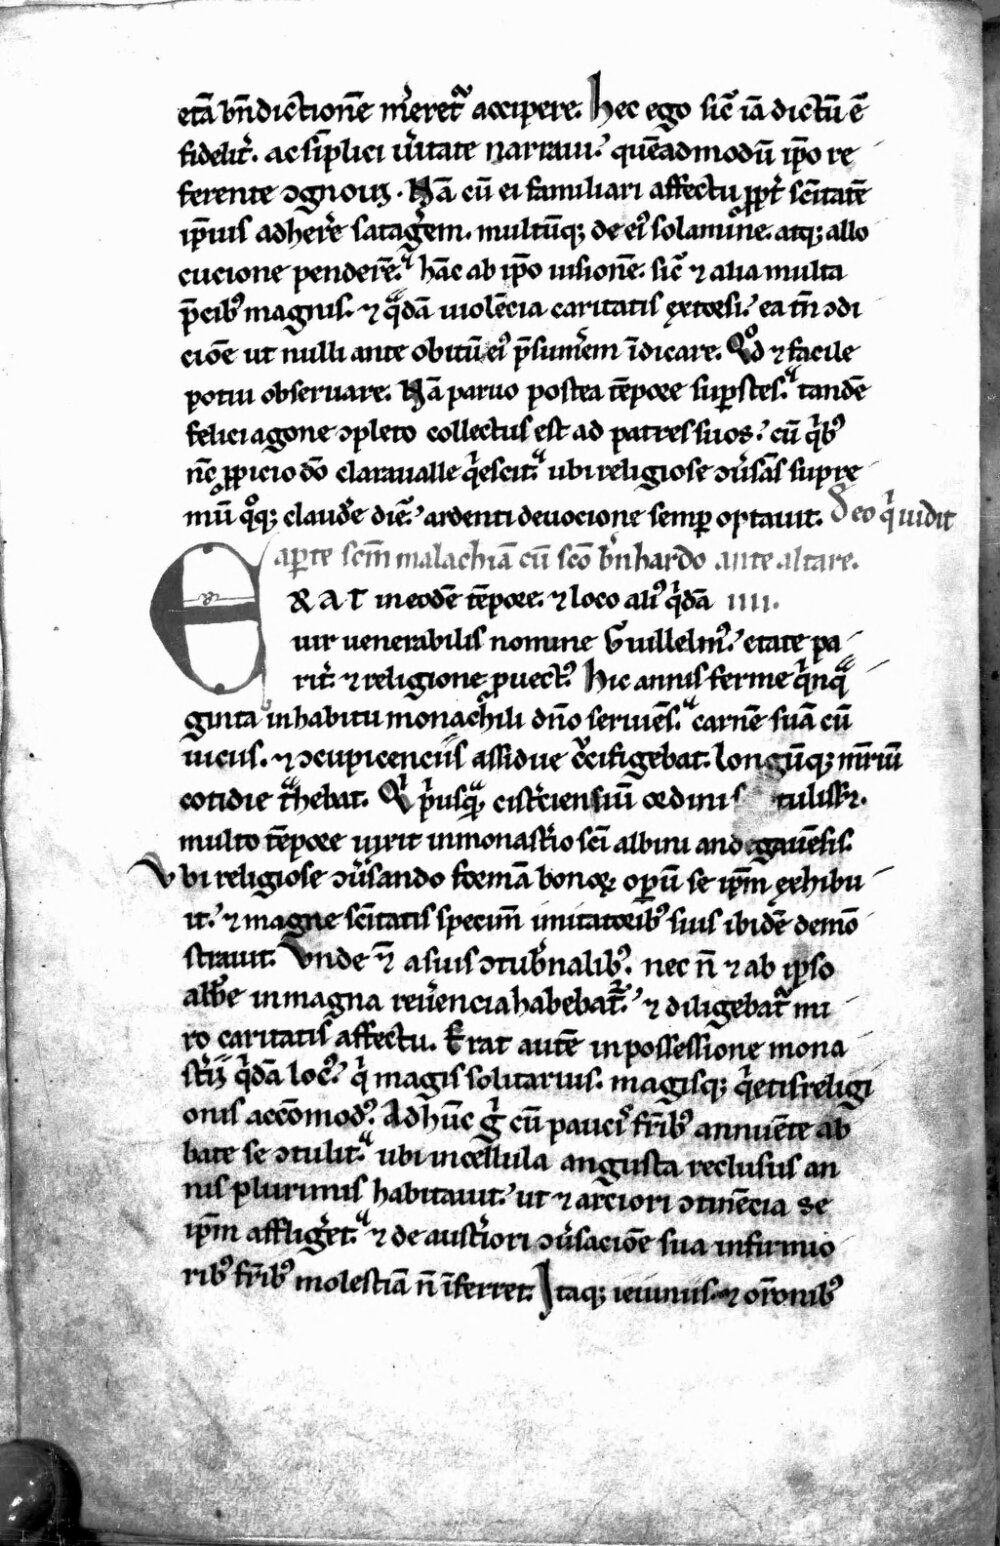 etā bn̄dictionē m̄eret᷑ accipere. Hec ego sic̄ iā dictū ē
fidelit᷑. ac sīplici ūitate narraui.' quēadmodū ip̄o re
ferente ꝯgnoui. Nā cū ei familiari affectu ꝓpt᷑ sc̄itatē
ip̄ius adher̄e sataḡem. multūq; de eiꝰ solamīne. atq; allo
cucione penderē. hāc ab ip̄o uisionē. sic̄ ⁊ alia multa
p̄cibꝰ magnis. ⁊ qᵃdā uiolēcia caritatis extorsi.' ea tn̄ ꝯdi
ciōe ut nulli ante obitū eiꝰ p̄sum̄em īdicare. Qᵒd ⁊ facile
potui obseruare. Nā paruo postea tēpore suꝑstes. tandē
felici agone ꝯpleto collectus est ad patres suos.' cū qⁱbꝰ
nc̄ ꝓpicio dō claraualle qⁱescit. ubi religiose ꝯūsās supre
mū qᵒq; claud̄e diē.' ardenti deuocione semꝑ optauit. De eo qⁱ uidit
aꝑte scm̄ malachiā cū sc̄o b̄nhardo ante altare.
ERAT in eodē tēpore. ⁊ loco aliꝰ qⁱdā IIII.
uir uenerabilis nomine Guillelmꝰ.' etate pa
rit᷑. ⁊ religione ꝓuectꝰ. Hic annis ferme qⁱnqᵃ
ginta in habitu monachili dn̄o seruiēs. carnē suā cū
uiciis. ⁊ ꝯcupicenciis assidue cᷓcifigebat. longūq; mr̄iū
cotidie tᵃhebat. Qⁱ pⁱusqᵃ cist̄ciensiū ordinis tulisset.
multo tēpore uixit in monast̄io sc̄i albini andegauēsis.
Vbi religiose ꝯūsando formā bonoꝝ oꝑū se ip̄m exhibu
it.' ⁊ magne sc̄itatis specim̄ imitatoribꝰ suis ibidē demō
strauit. Vnde ⁊ a suis ꝯtub̄nalibꝰ. nec n̄ ⁊ ab ipso
abb̄e in magna reūencia habebat᷑.' ⁊ diligebat᷑ mi
ro caritatis affectu. Erat autē in possessione mona
st̄ij qⁱdā locꝰ.' qⁱ magis solitarius. magisq; qⁱetis religi
onis accōmodꝰ. Ad hūc gⁱ cū paucis fr̄ibꝰ annuēte ab
bate se ꝯtulit. ubi in cellula angusta reclusus an
nis plurimis habitauit.' ut ⁊ arciori ꝯtinēcia se
ip̄m affliḡet. ⁊ de aust̄iori ꝯūsaciōe sua infirmio
ribꝰ fr̄ibꝰ molestiā n̄ īferret. Itaq; ieiuniis. ⁊ or̄onibꝰ